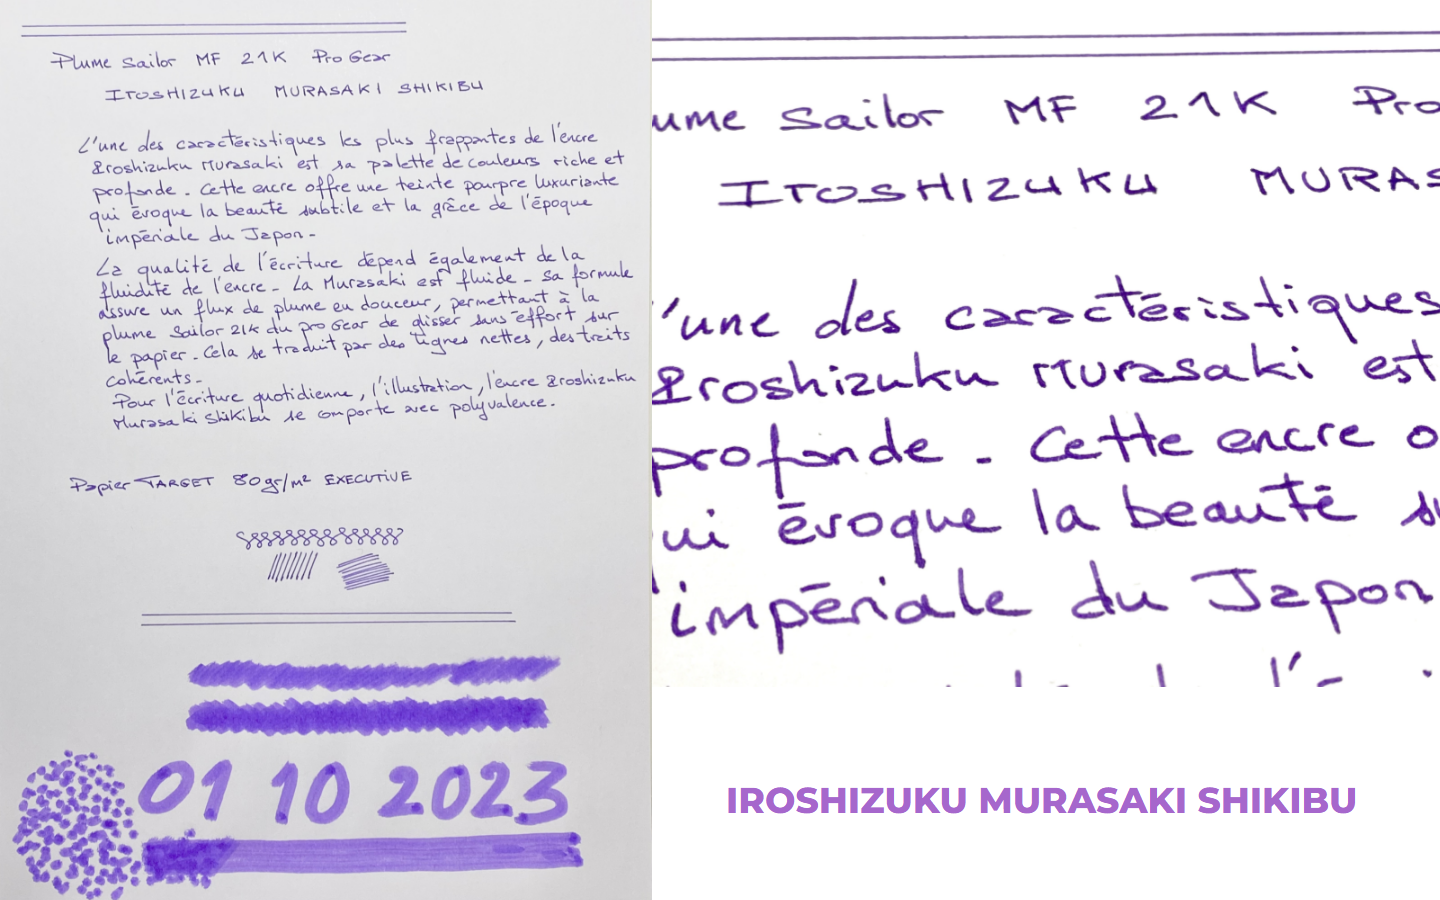 Plume Sailor MF 21K Pro Gear
ITOSHIZUKU MURASAKI SHIKIBU
L'une des caractēristiques les plus frappantes de l'encre
Iroshizuku Murasaki est sa palette de couleurs riche et
profonde - Cette encre offre une teinte pourpre luxuriante
qui ēvoque la beautē subtile et la grâce de l'ēpoque
impēriale du Japon -
La qualitē de l'ēcriture dēpend ēgalement de la
fluiditē de l'encre - La Murasaki est fluide - Sa formule
assure un flux de plume en douceur, permettant à la
plume Sailor 21K du pro Gear de glisser sans effort sur
le papier - Cela se traduit par des lignes nettes, des traits
cohērents -
Pour l'ēcriture quotidienne, l'illustration, l'encre Iroshizuku
Murasaki Shikibu se comporte avec polyvalence.
Papier TARGET 80gr/m² EXECUTIVE
01 10 2023
ume Sailor MF 21K Pro
ITOSHIZUKU MURAS
'une des caractēristiques
Iroshizuku Murasaki est
profonde - Cette encre o
ui ēvoque la beautē su
impēriale du Japon
IROSHIZUKU MURASAKI SHIKIBU